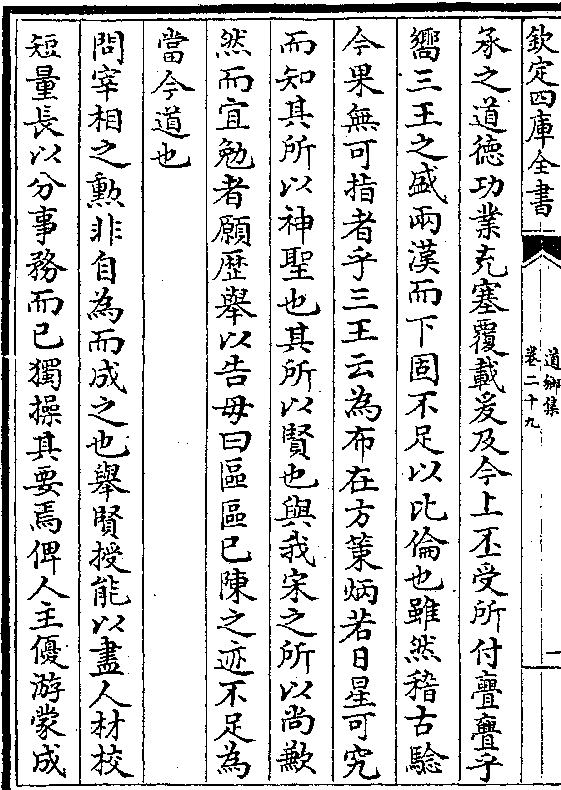 欽定四庫全書
道鄉集
卷二十九
一
承之道德功業充塞覆載爰及今上丕受所付亹亹乎
嚮三王之盛兩漢而下固不足以比倫也雖然稽古驗
今果無可指者乎三王云為布在方策炳若日星可究
而知其所以神聖也其所以賢也與我宋之所以尚歉
然而宜勉者願歷舉以告毋曰區區已陳之迹不足為
當今道也
問宰相之勲非自為而成之也舉賢授能以盡人材校
短量長以分事務而已獨操其要焉俾人主優游蒙成